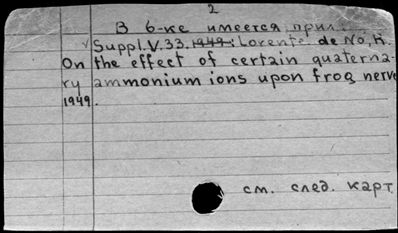 2
В 6-ке имеется прил.:
Suppl.V.33. 1949: Lorente de Nó, R.
On the effect of certain quaterna-
ry ammonium ions upon frog nerve
1949.
см. след. карт.